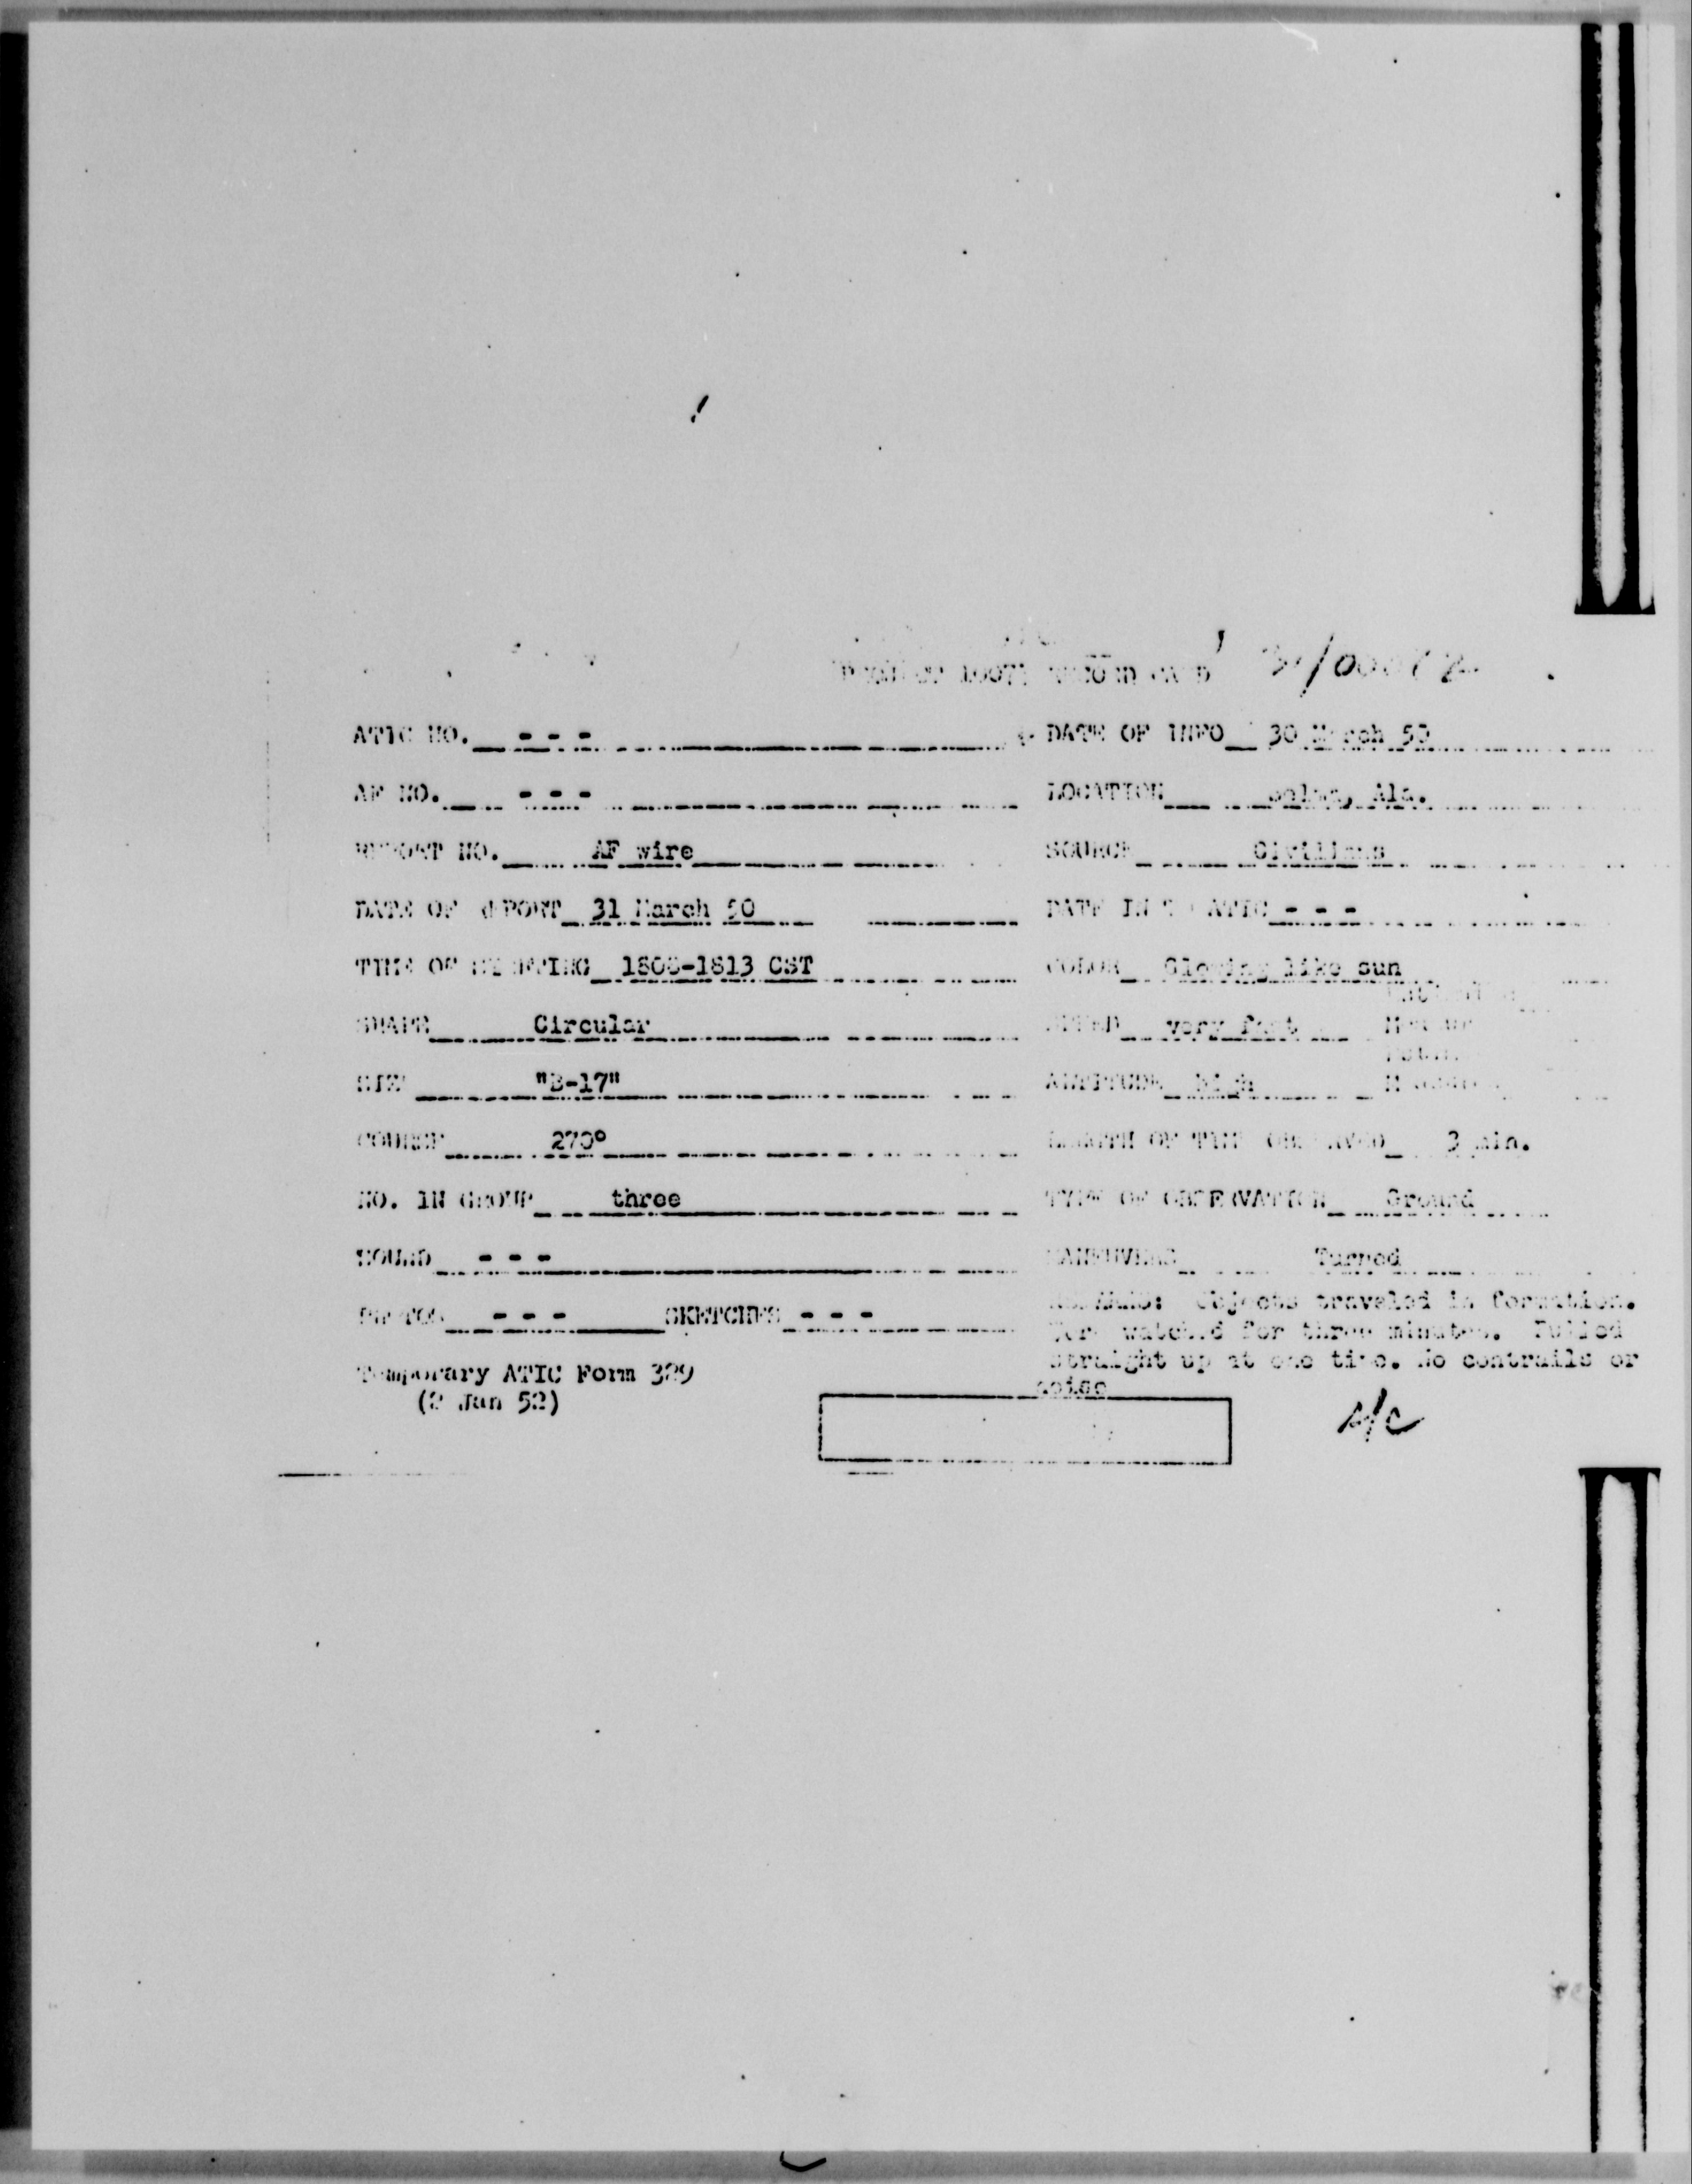 PROJECT 10073 RECORD CARD
ATIC NO. - - - DATE OF INFO 30 March 50
AF NO. - - - LOCATION Selma, Ala.
REPORT NO. AF wire SOURCE Civilians
DATE OF REPORT 31 March 50 DATE IN TO ATIC - - -
TIME OF SIGHTING CST COLOR Glowing like sun
SHAPE Circular SPEED very fast
SIZE "B-17" ALTITUDE high
COURSE 270° LENGTH OF TIME OBSERVED 3 min.
NO. IN GROUP three TYPE OF OBSERVATION Ground
SOUND - - - MANEUVERS Turned
PHOTOS - - - SKETCHES - - - REMARKS: Objects traveled in formation.
Were watched for three minutes. Pulled
straight up at one time. No contrails or
noise
Temporary ATIC Form 329
(2 Jan 52)